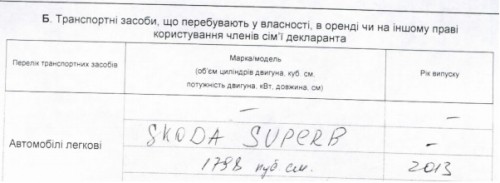 Б. Транспортні засоби, що перебувають у власності, в оренді чи на іншому праві
користування членів сім’ї декларанта
Перелік транспортних засобів
Марка/модель
(об’єм циліндрів двигуна, куб. см,
потужність двигуна, кВт, довжина, см)
Рік випуску
– –
Автомобілі легкові
SKODA SUPERB –
1798 куб см. 2013